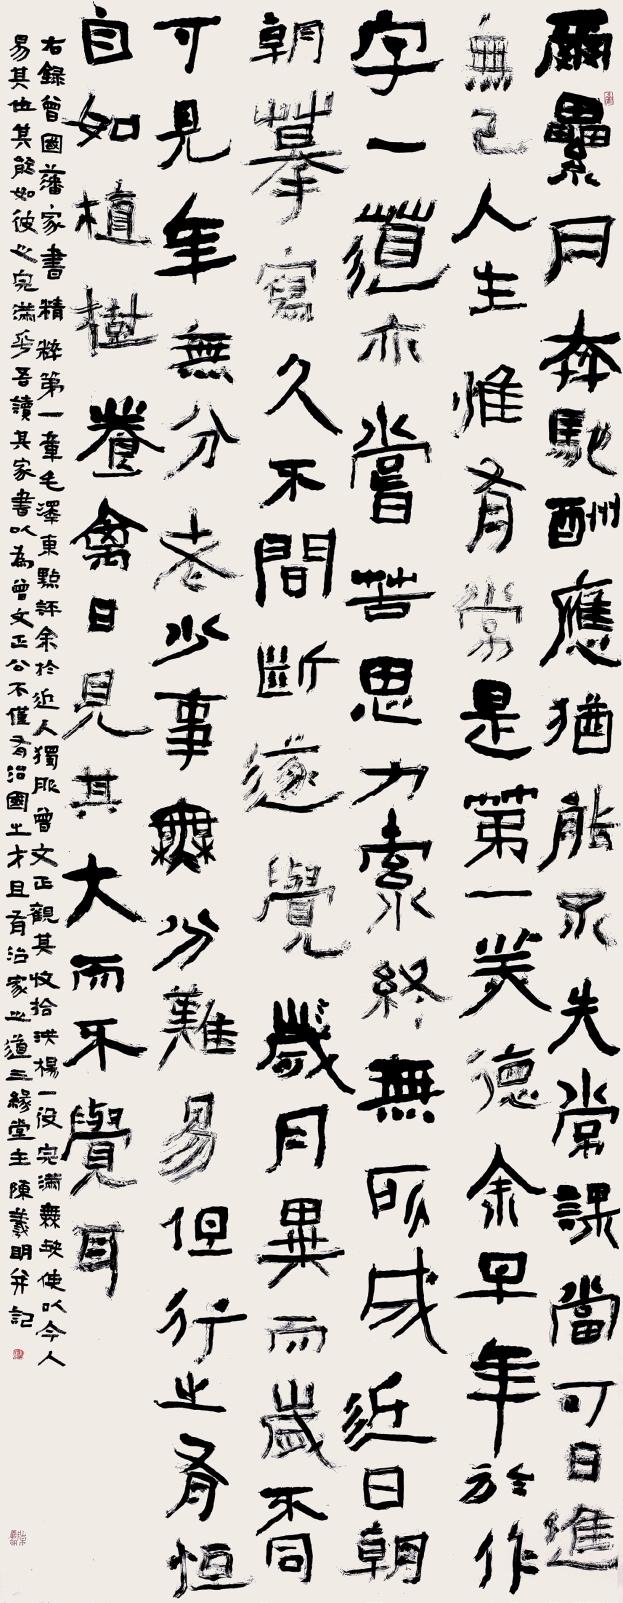 爾纍月奔馳酬應猶能不失常課當可日進
無已人生惟有常是第一美德余早年於作
字一道亦嘗苦思力索終無所成近日朝
朝摹寫久不間斷遂覺歲月異而歲不同
可見年無分老少事無分難易但行之有恒
自如植樹養禽日見其大而不覺耳
右錄曾國藩家書精粹第一章毛澤東點評余於近人獨服曾文正觀其收拾洪楊一役完滿無缺使以今人
易其位其能如彼之完滿乎吾讀其家書以為曾文正公不僅有治國之才且有治家之道三緣堂主陳義明并記